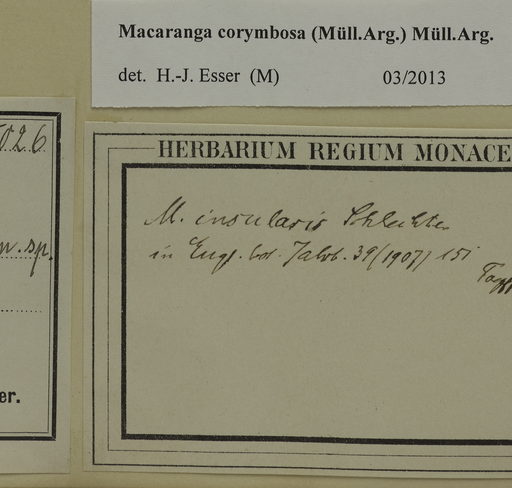 Macaranga corymbosa (Müll.Arg.) Müll.Arg.
det. H.-J. Esser (M) 03/2013
026
n. sp.
er.
HERBARIUM REGIUM MONACE
M. insularis Schlechter
in Engl. bot. Jahrb. 39 (1907) 151